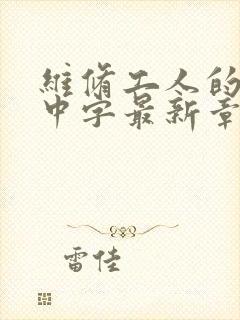 維脩工人的
中字最新章
雷佳